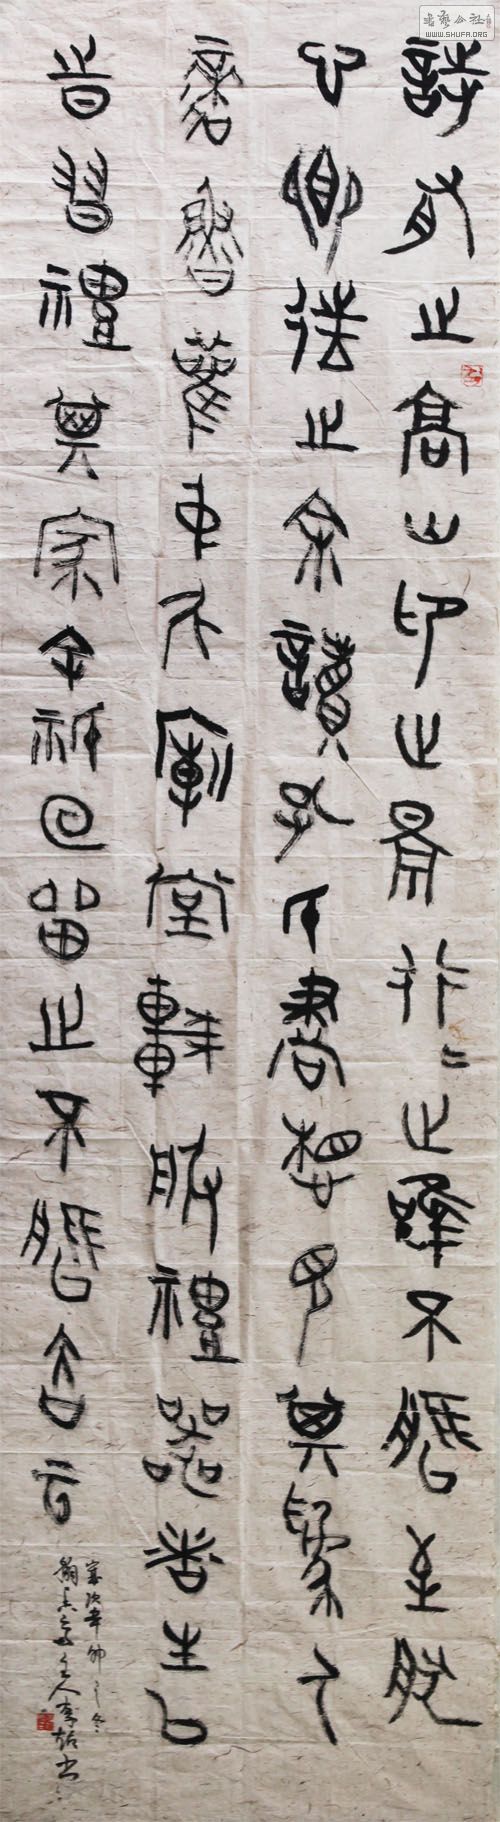 书艺公社
WWW.SHUFA.ORG
詩有之高山仰止景行〻止雖不能至然
心鄉往之余讀孔氏書想見其為人
適魯觀仲尼廟堂車服禮器諸生以
時習禮其家余祗回留之不能去云
歲次辛卯之冬
主人李書